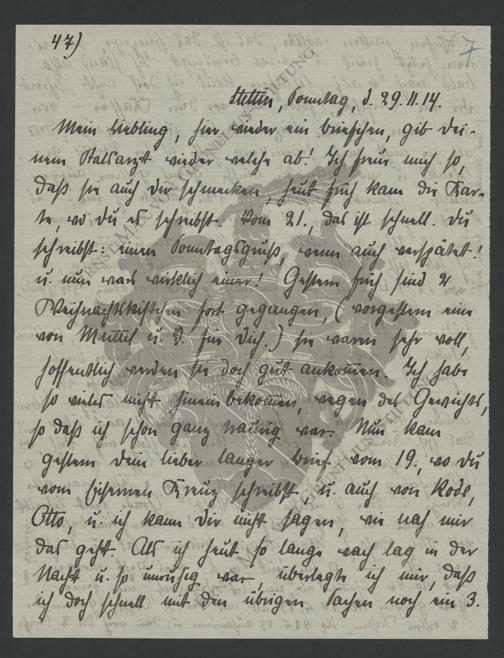 47)
7
Stettin, Sonntag, d. 29.11.14.
Mein Liebling, hier wieder ein briefchen, gib dei-
nem Stabsarzt wieder welche ab! Ich freu mich so,
daß sie auch dir schmecken, heut früh kam die Kar-
te, wo du es schreibst. Vom 21., das ist schnell. du
schreibst: einen Sonntagsgruß, wenn auch verspätet!
u. nun wars wirklich einer! Gestern früh sind 2
Weihnachtskistchen fort gegangen, (vorgestern eine
von Muttil u. V. für dich.) sie waren sehr voll,
hoffentlich werden sie doch gut ankommen. Ich habe
so vieles nicht hinein bekommen, wegen des Gewichts,
so daß ich schon ganz traurig war. Nun kam
gestern dein lieber langer Brief vom 19., wo du
vom Eisernen Kreuz schreibst, u. auch von
Otto, u. ich kann dir nicht sagen, wie nah mir
das geht. Als ich heut so lange wach lag in der
Nacht u. so unruhig war, überlegte ich mir, daß
ich doch schnell mit den übrigen Sachen noch ein 3.